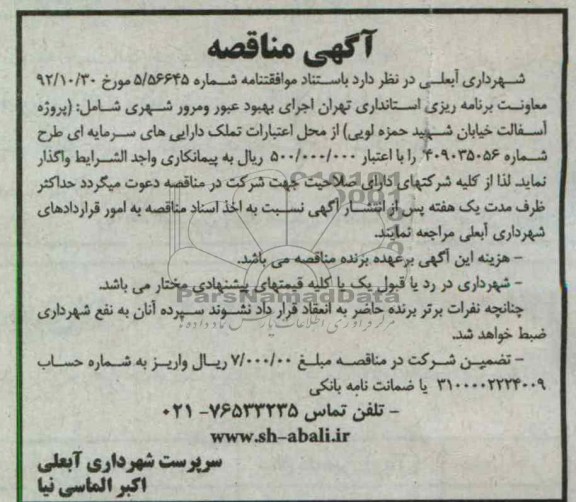 آگهی مناقصه
شهرداری آبعلی در نظر دارد باستناد موافقتنامه شماره ۵/۵۶۶۴۵ مورخ ۹۲/۱۰/۳۰
معاونت برنامه ریزی استانداری تهران اجرای بهبود عبور ومرور شهری شامل: (پروژه
آسفالت خیابان شهید حمزه لویی) از محل اعتبارات تملک دارایی های سرمایه ای طرح
شماره ۴۰۹۰۳۵۰۵۶ را با اعتبار ۵۰۰/۰۰۰/۰۰۰ ریال به پیمانکاری واجد الشرایط واگذار
نماید. لذا از کلیه شرکتهای دارای صلاحیت جهت شرکت در مناقصه دعوت میگردد حداکثر
ظرف مدت یک هفته پس از انتشار آگهی نسبت به اخذ اسناد مناقصه به امور قراردادهای
شهرداری آبعلی مراجعه نمایند.
- هزینه این آگهی برعهده برنده مناقصه می باشد.
- شهرداری در رد یا قبول یک یا کلیه قیمتهای پیشنهادی مختار می باشد.
ParsNamadData
چنانچه نفرات برتر برنده حاضر به انعقاد قرار داد نشوند سپرده آنان به نفع شهرداری
مرکز فرآوری اطلاعات پارس نماد داده ها
ضبط خواهد شد.
- تضمین شرکت در مناقصه مبلغ ۷/۰۰۰/۰۰ ریال واریز به شماره حساب
۳۱۰۰۰۰۲۲۲۴۰۰۹ یا ضمانت نامه بانکی
- تلفن تماس ۷۶۵۳۳۲۳۵- ۰۲۱
www.sh-abali.ir
سرپرست شهرداری آبعلی
اکبر الماسی نیا